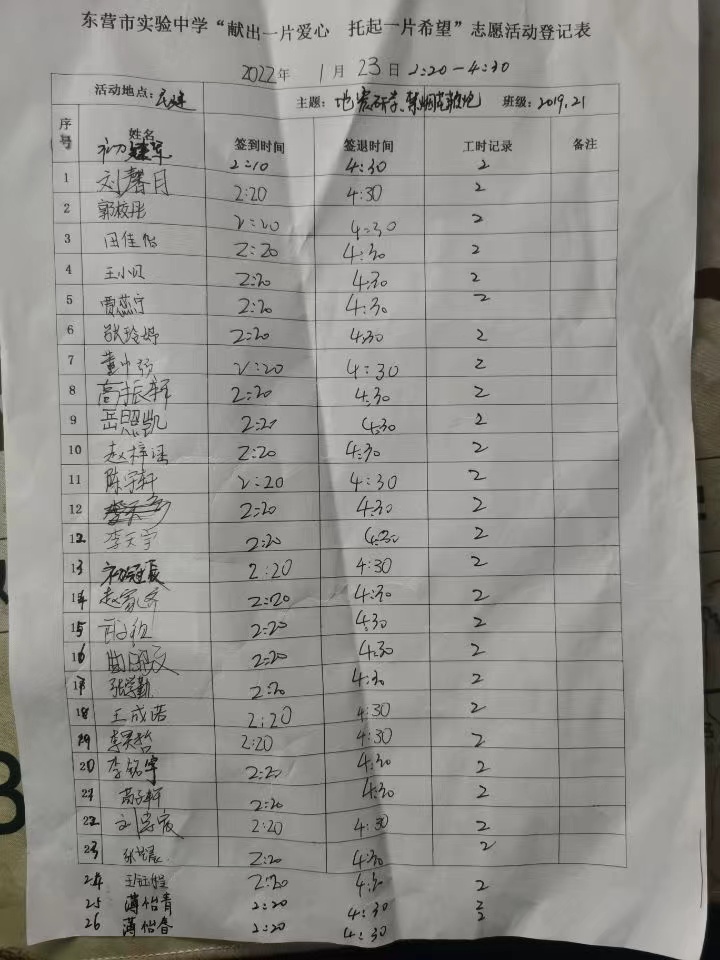 东营市实验中学“献出一片爱心 托起一片希望”志愿活动登记表
2022年 1月23日 2:20-4:30
活动地点: 主题:地震研学、禁烟花 班级:2019.21
序号 姓名 签到时间 签退时间 工时记录 备注
2:10 4:30 2
1 刘馨月 2:20 4:30 2
2 郭校彤 2:20 4:30 2
3 田佳怡 2:20 4:30 2
4 王小贝 2:20 4:30 2
5 贾燕宁 2:20 4:30 2
6 张玲婷 2:20 4:30 2
7 董中弘 2:20 4:30 2
8 高振轩 2:20 4:30 2
9 岳照凯 2:20 4:30 2
10 赵梓涵 2:20 4:30 2
11 陈宇轩 2:20 4:30 2
12 2:20 4:30 2
12 李天宇 2:20 4:30 2
13 初冠辰 2:20 4:30 2
14 赵家齐 2:20 4:30 2
15 2:20 4:30 2
16 2:20 4:30 2
17 张学勤 2:20 4:30 2
18 王成诺 2:20 4:30 2
19 李昊哲 2:20 4:30 2
20 李铭宇 2:20 4:30 2
21 高子轩 2:20 4:30 2
22 2:20 4:30 2
23 2:20 4:30 2
24 王钰程 2:20 4:30 2
25 薄怡青 2:20 4:30 2
26 薄怡春 2:20 4:30 2